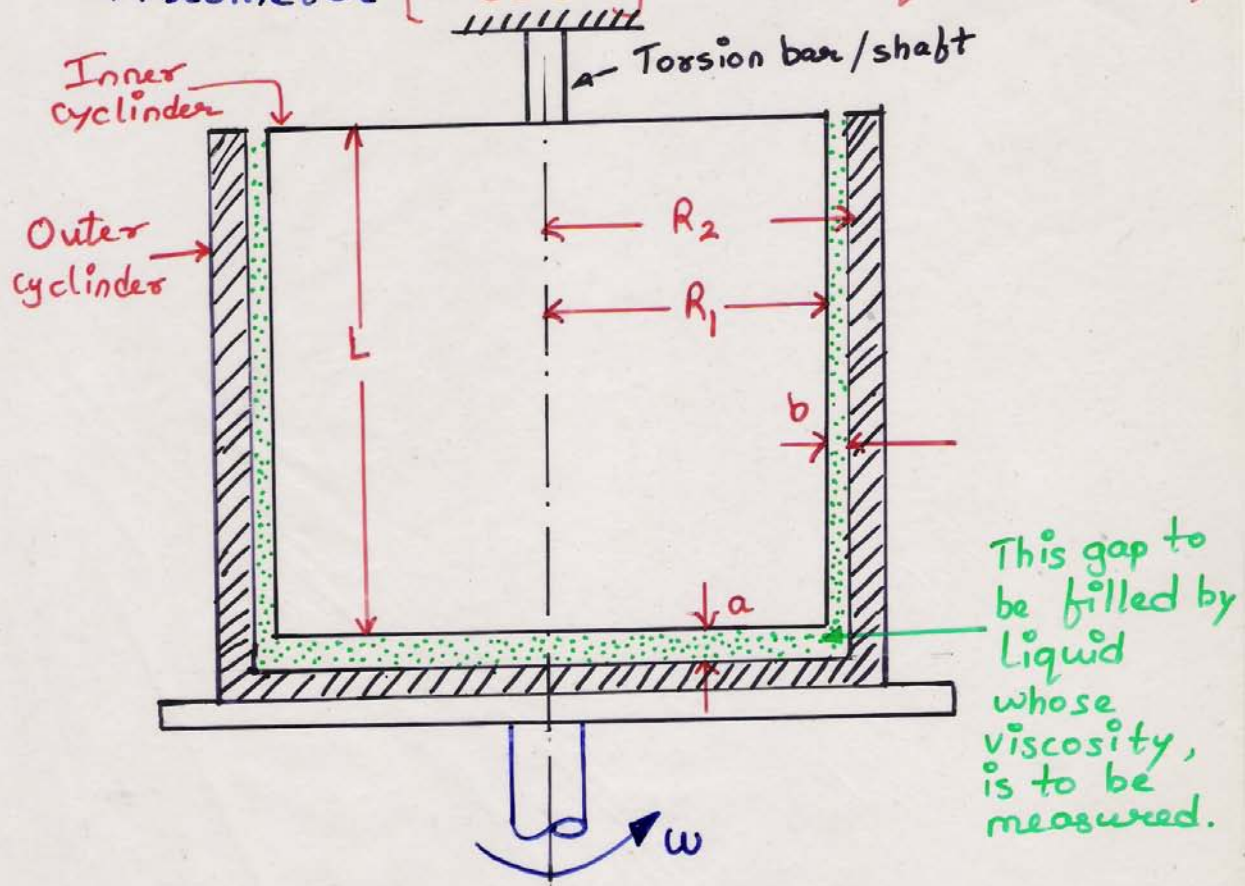 Torsion bar/shaft
Inner
cyclinder
Outer
cyclinder
R2
R1
L
b
a
This gap to
be filled by
Liquid
whose
viscosity,
is to be
measured.
ω